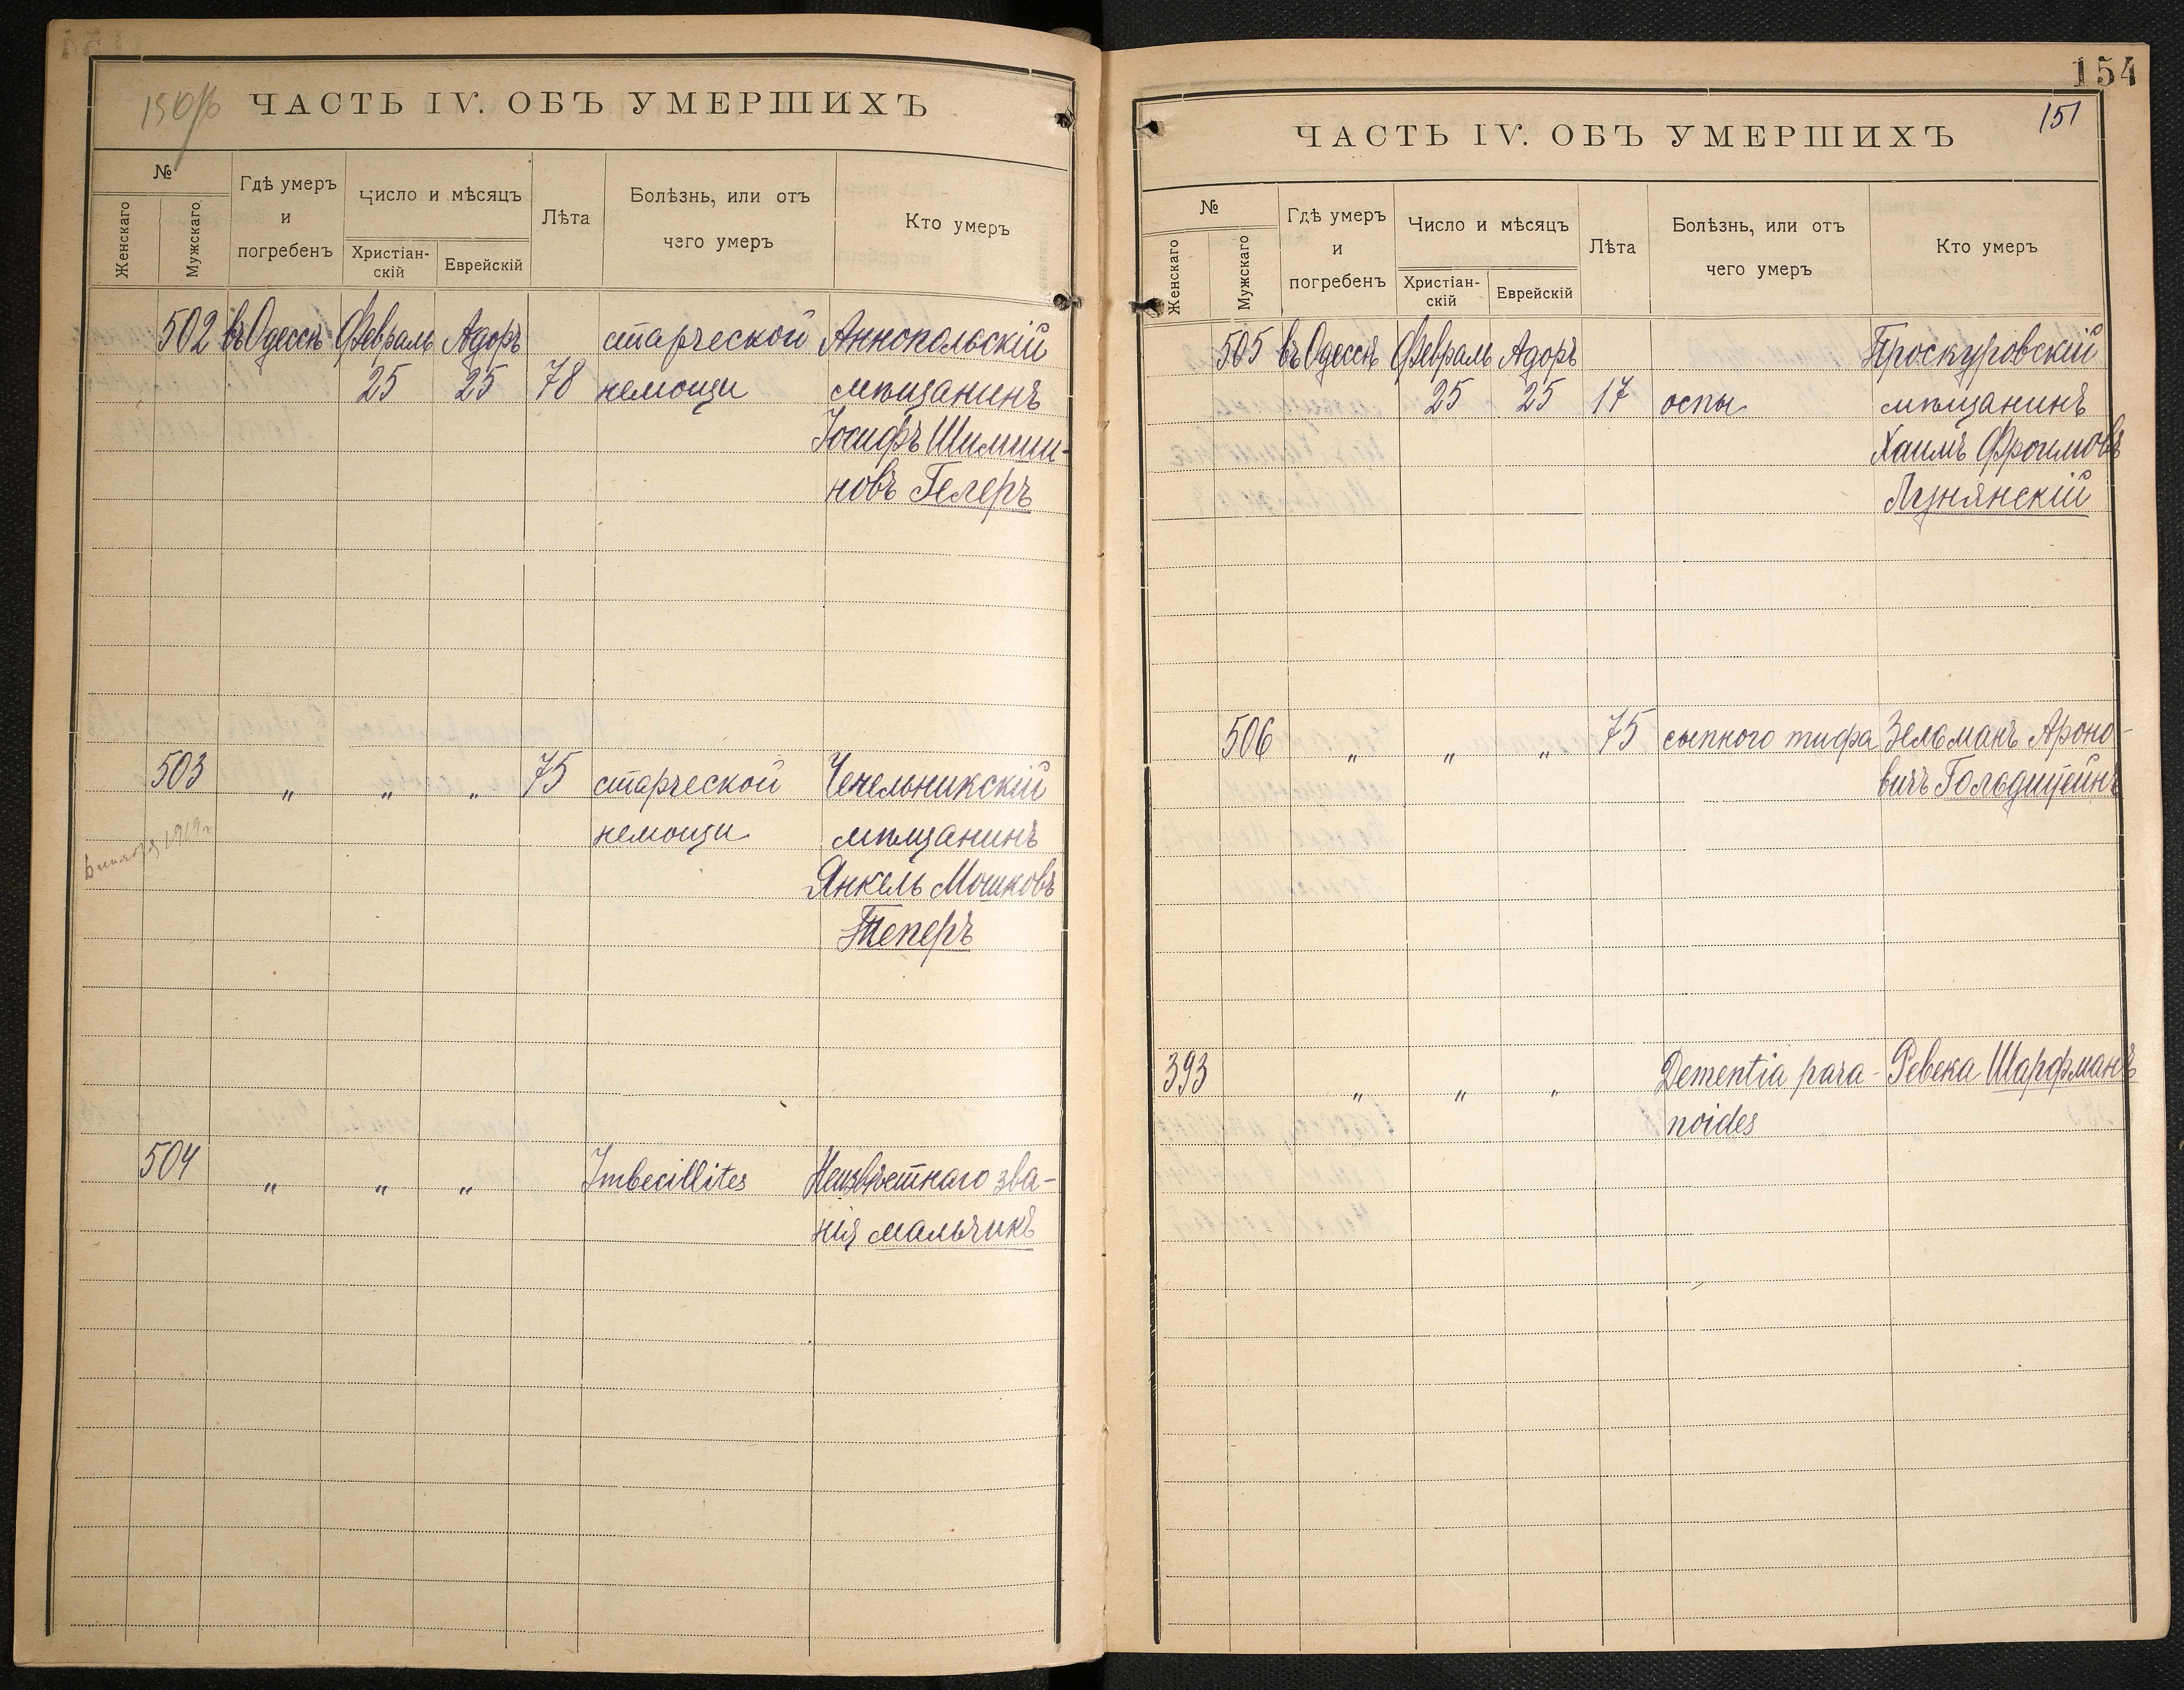 150/б ЧАСТЬ IV. ОБЪ УМЕРШИХЪ
№
Женскаго
Мужскаго
Гдѣ умеръ
и
погребенъ
Число и мѣсяцъ
Христіан-
скій
Еврейскій
Лѣта
Болѣзнь, или отъ
чего умеръ
Кто умеръ
502 въ Одессѣ Февраль Адоръ старческой Аннопольскій
25 25 78 немощи мѣщанинъ
Іосифъ Шимши-
новъ Гелеръ
503 „ „ „ 75 старческой Чечельникскій
немощи мѣщанинъ
1919 г
Янкель Мошковъ
Теперъ
504 „ „ „ Imbecillites Неизвѣстнаго зва-
нія мальчикъ
154
151
ЧАСТЬ IV. ОБЪ УМЕРШИХЪ
№
Женскаго
Мужскаго
Гдѣ умеръ
и
погребенъ
Число и мѣсяцъ
Христіан-
скій
Еврейскій
Лѣта
Болѣзнь, или отъ
чего умеръ
Кто умеръ
505 въ Одессѣ Февраль Адоръ Проскуровскій
25 25 17 оспы мѣщанинъ
Хаимъ Фроимовъ
Лунянскій
506 „ „ „ 75 сыпного тифа Зельманъ Ароно-
вичъ Гольдштейнъ
393 „ „ „ Dementia para- Ревека Шарфманъ
noides